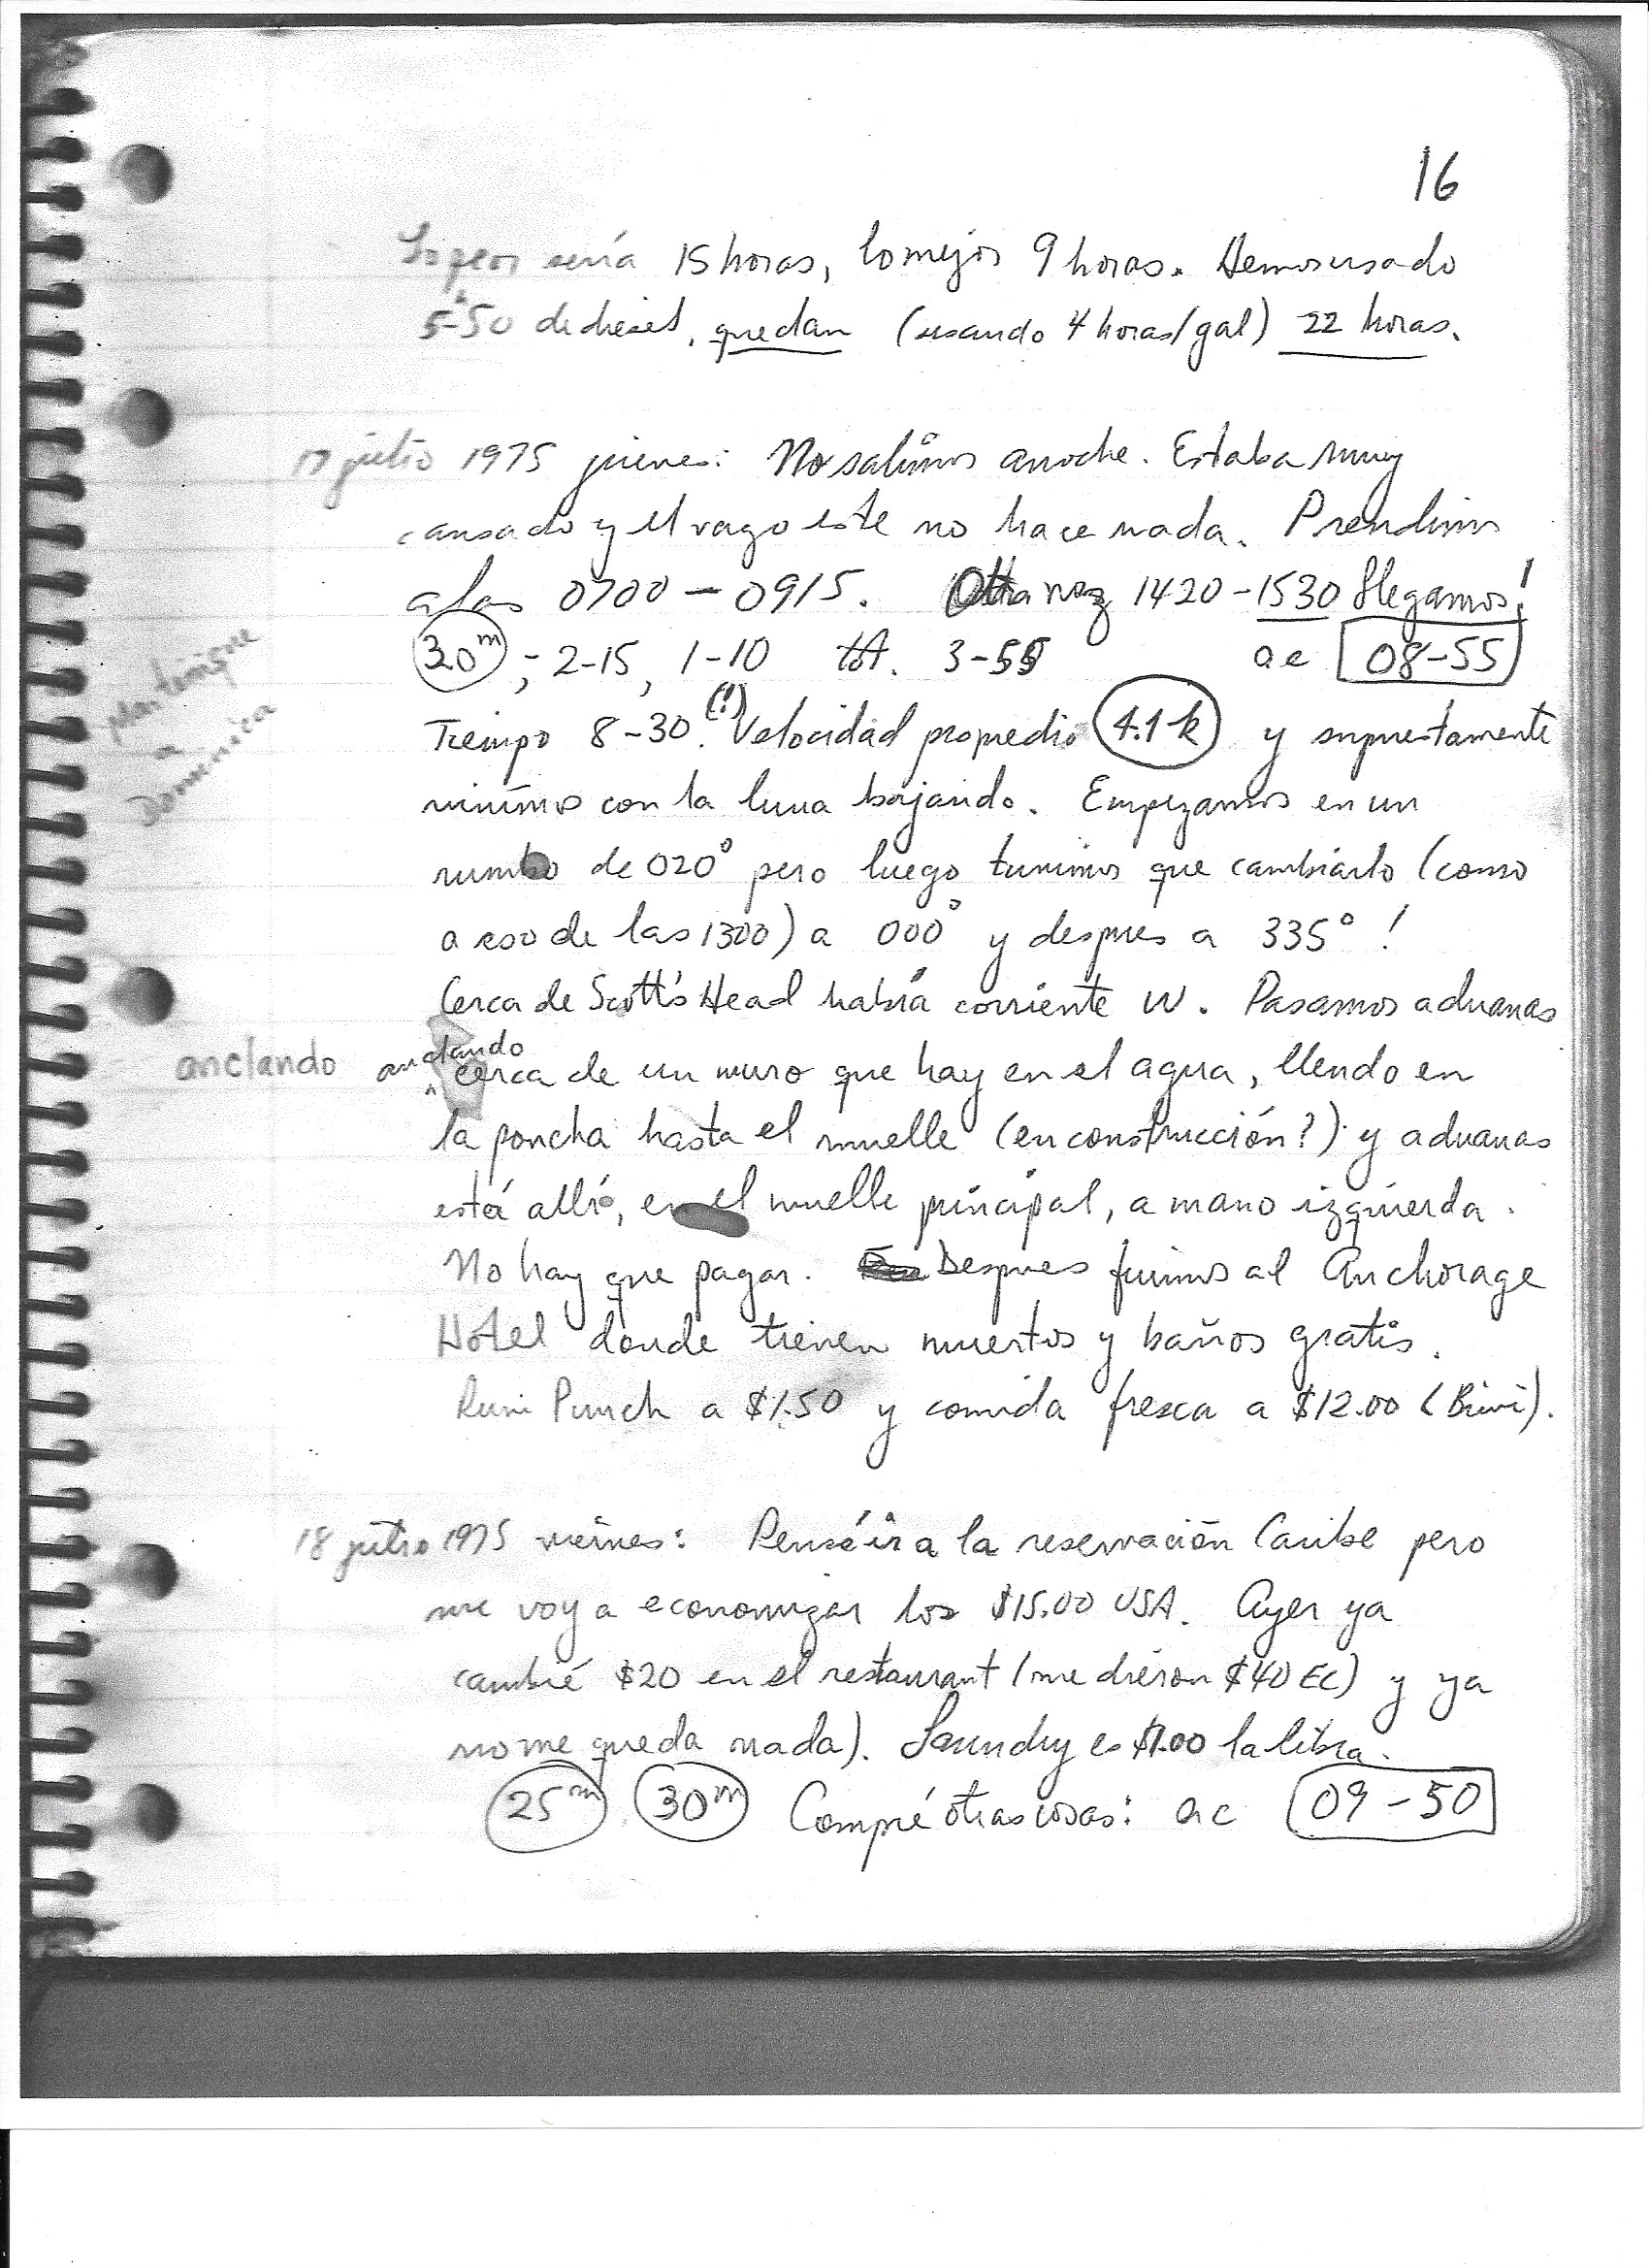 16
Lo peor sería 15 horas, lo mejor 9 horas. Hemos usado
5-50 de diesel, quedan (usando 4 horas/gal) 22 horas.
17 julio 1975 jueves: No salimos anoche. Estaba muy
cansado y el vago este no hace nada. Prendimos
a las 0700 - 0915. Otra vez 1420 - 1530 llegamos!
30m; 2-15, 1-10 tot. 3-55 ac 08-55
Martinique
a
Dominica
Tiempo 8-30.(!) Velocidad promedio 4.1 k y supuestamente
vinimos con la luna bajando. Empezamos en un
rumbo de 020° pero luego tuvimos que cambiarlo (como
a eso de las 1300) a 000° y despues a 335°!
Cerca de Scott's Head había corriente W. Pasamos aduanas
anclando anclando cerca de un muro que hay en el agua, llendo en
la poncha hasta el muelle (en construcción?) y aduanas
está allí, en el muelle principal, a mano izquierda.
No hay que pagar. Despues fuimos al Anchorage
Hotel donde tienen muertos y baños gratis.
Rum Punch a $1.50 y comida fresca a $12.00 (Biwi).
18 julio 1975 viernes: Pensé ir a la reservación Caribe pero
me voy a economizar los $15.00 USA. Ayer ya
cambié $20 en el restaurant (me dieron $40 EC) y ya
no me queda nada). Laundry es $1.00 la libra.
25m 30m Compré otras cosas: ac 09-50